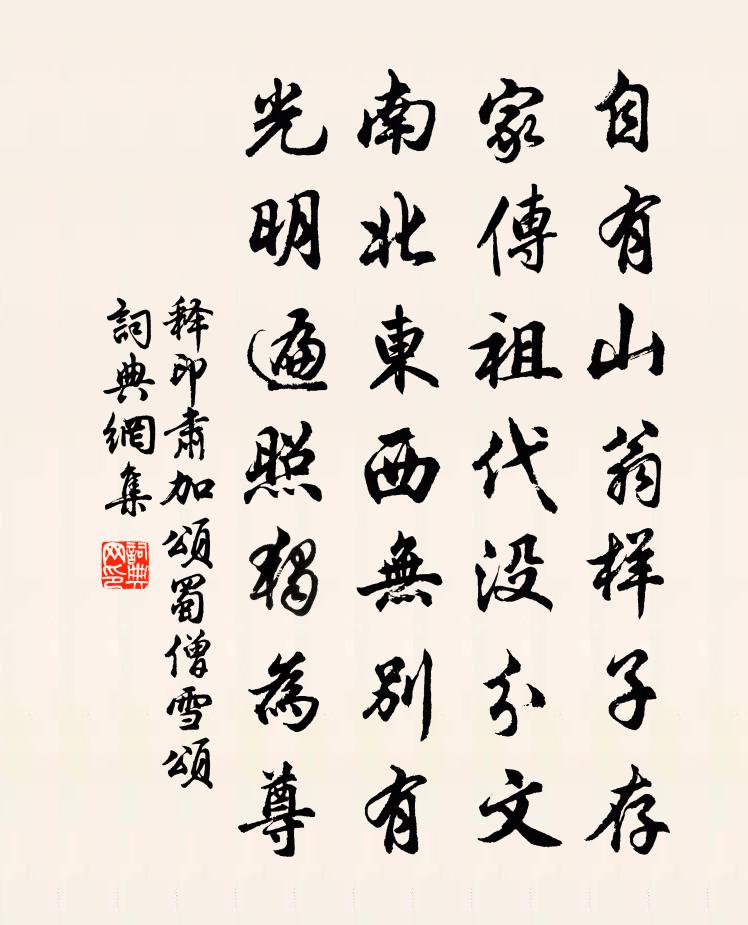 自有山翁样子存
家傳祖代没分文
南北東西無別有
光明遍照獨為尊
释印肃加頌蜀僧雪頌
詞典網集
詞典网印